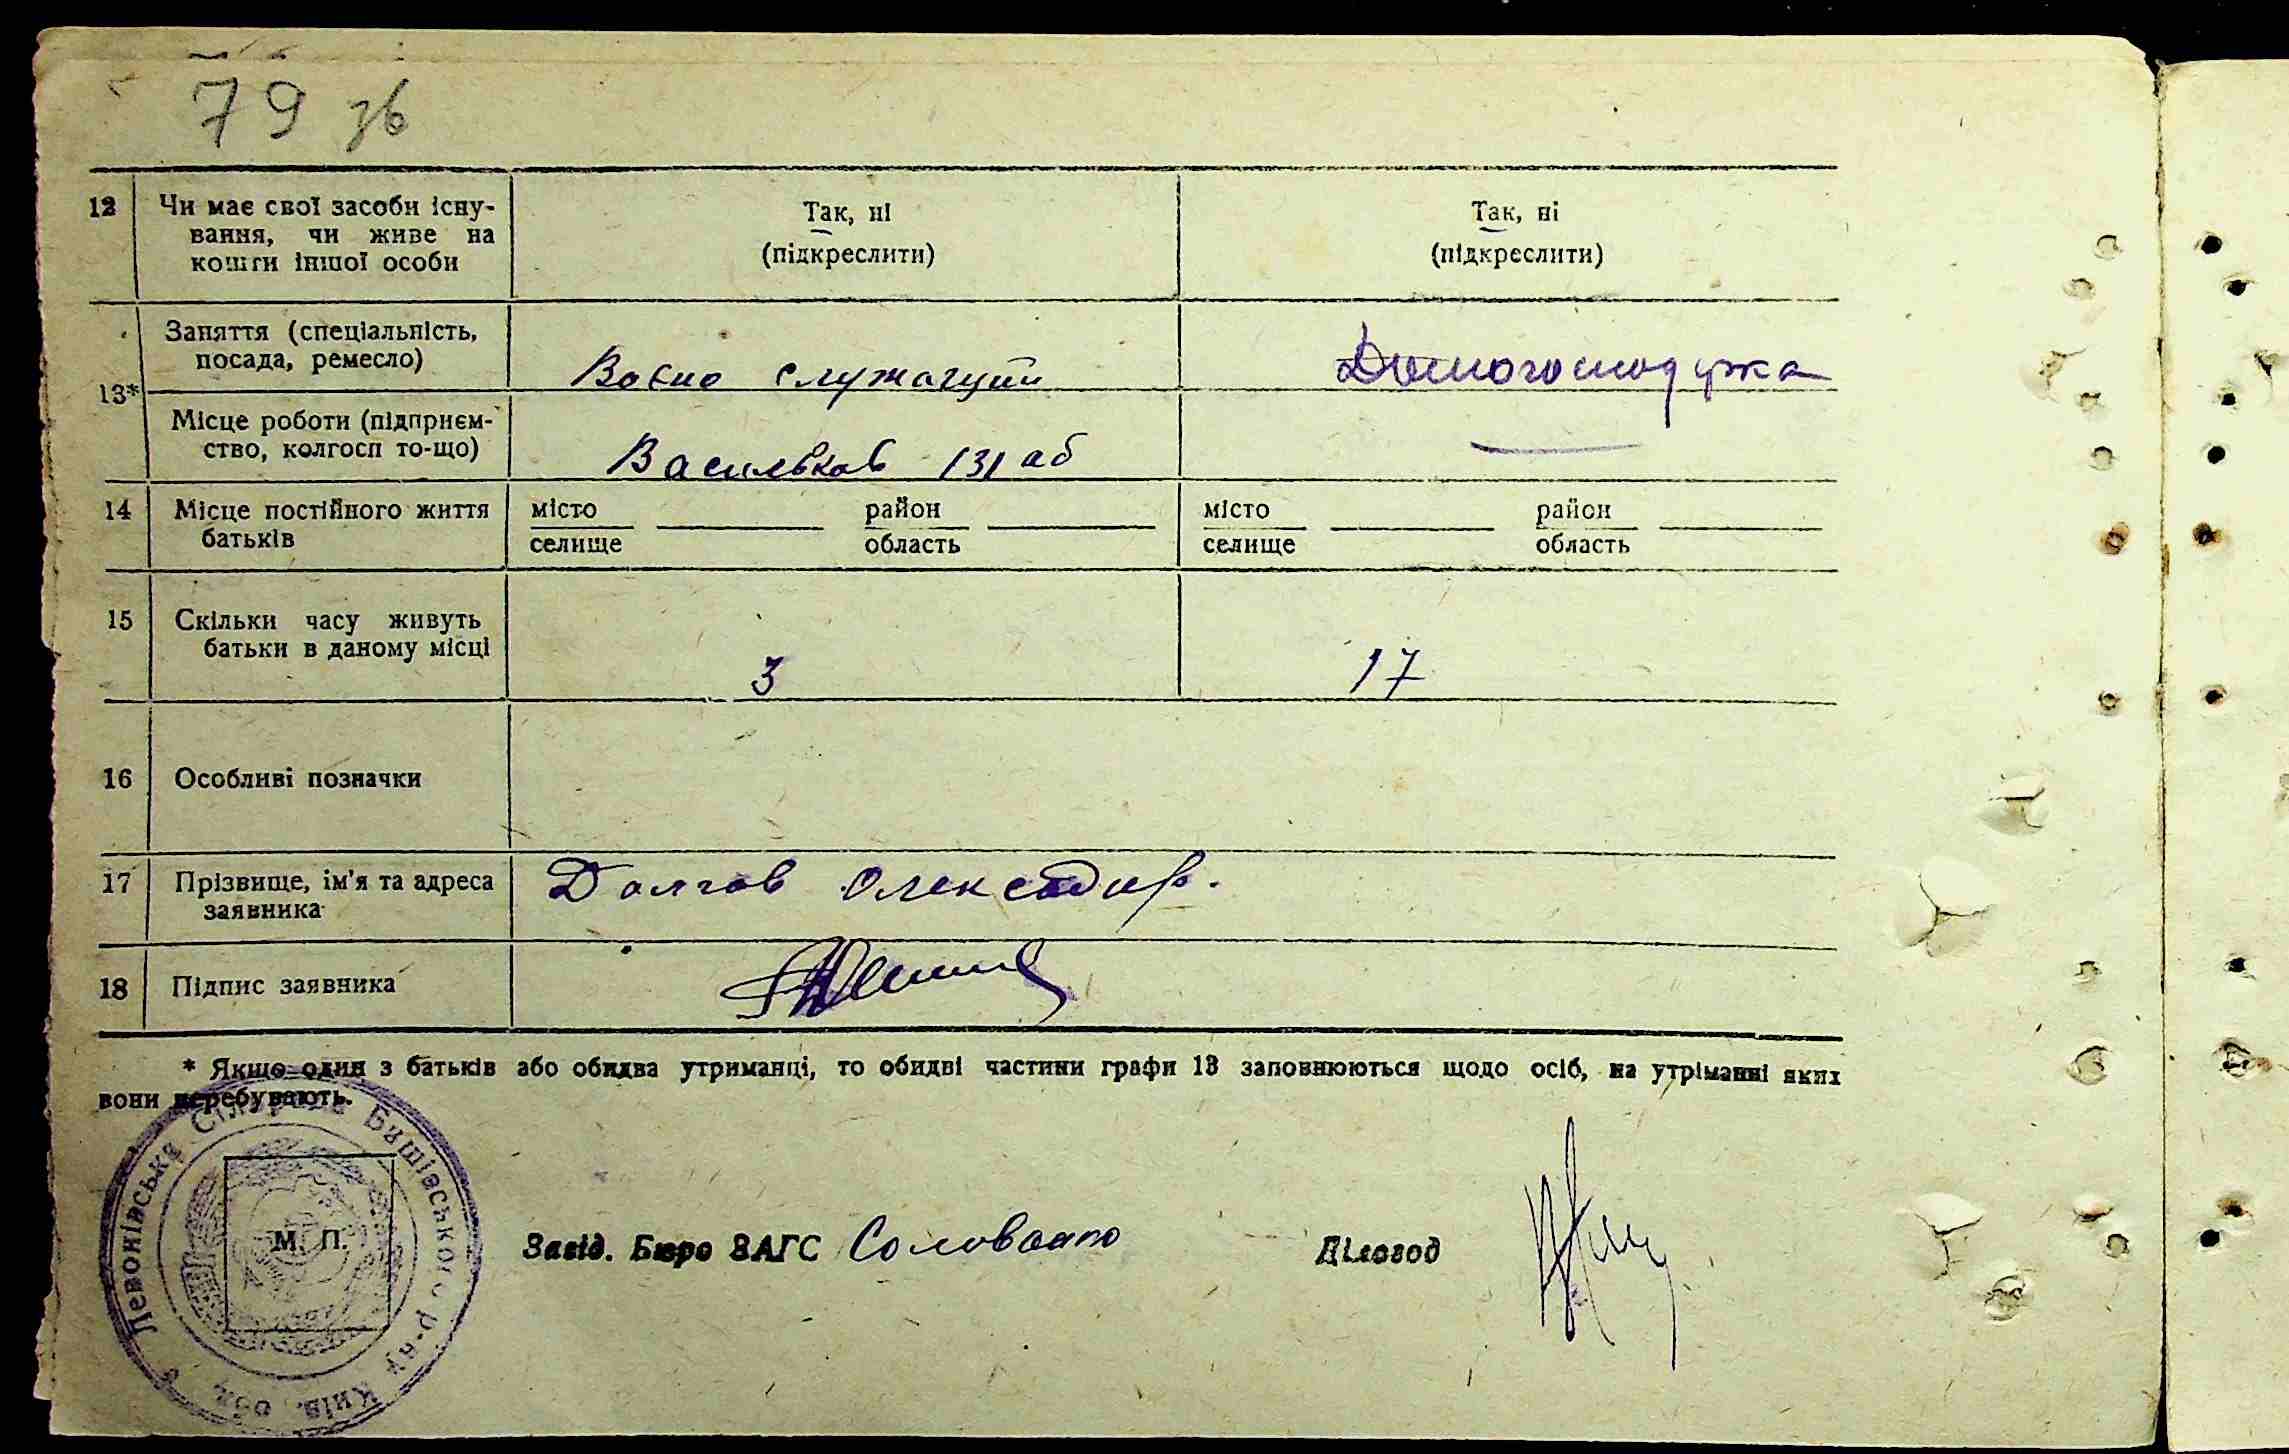 79 зв
12 Чи має свої засоби існу-
вання, чи живе на
кошти іншої особи
Так, ні
(підкреслити)
Так, ні
(підкреслити)
13*
Заняття (спеціальність,
посада, ремесло)
Воєно служачий
Домогосподужка
Місце роботи (підприєм-
ство, колгосп то-що)
Васильков 131 аб
14 Місце постійного життя
батьків
місто
селище
район
область
місто
селище
район
область
15 Скільки часу живуть
батьки в даному місці
3
17
16 Особливі позначки
17 Прізвище, ім'я та адреса
заявника
Долгов Олександр.
18 Підпис заявника
* Якщо один з батьків або обидва утриманці, то обидві частини графи 13 заповнюються щодо осіб, на утріманні яких
вони перебувають.
Левонівська Сільрада Бишівського р-ну Київ. обл.
М. П.
Завід. Бюро ЗАГС
Діловод